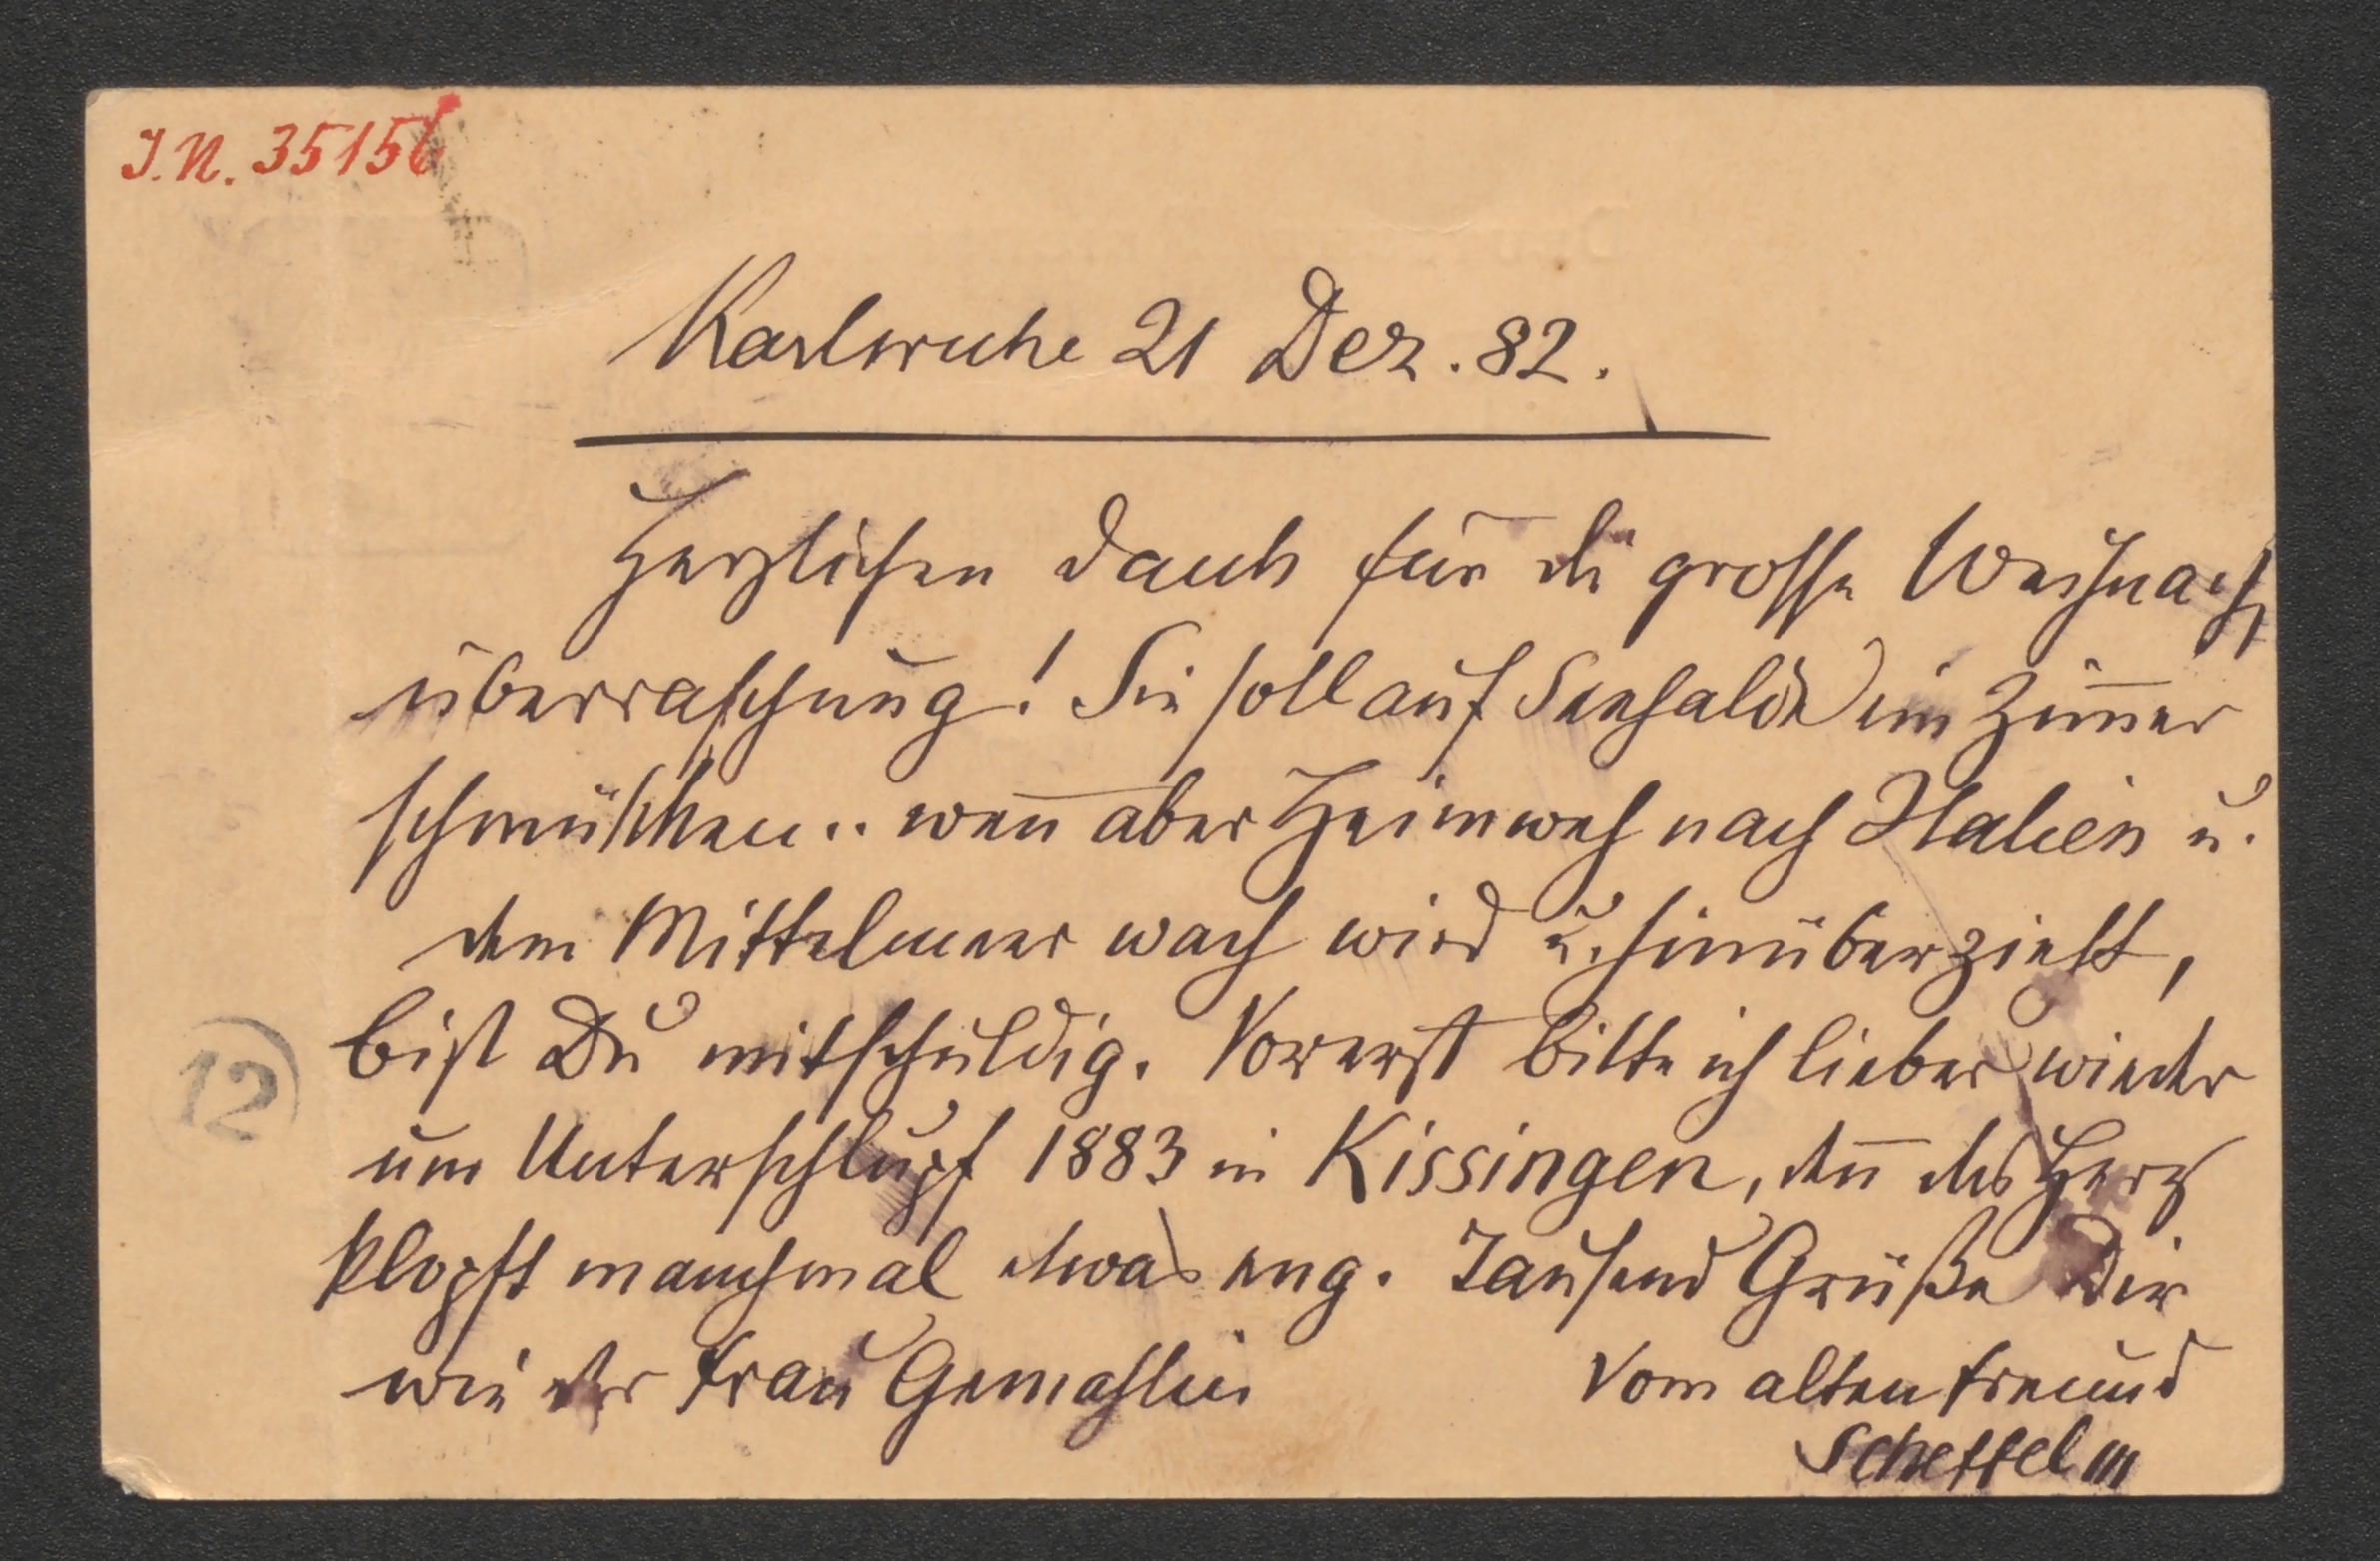 I.N. 35156
Karlsruhe 21 Dez. 82.
Herzlichen Dank für die grosse Weihnachts
überraschung! Sie soll auf Seehalde ein Zim̅er
schmücken.. wen̅ aber Heimweh nach Italien u.
dem Mittelmeer wach wird u. hinüberzieht,
bist Du mitschuldig. Vorerst bitte ich lieber wieder
um Unterschlupf 1883 in Kissingen, den̅ das Herz
klopft manchmal etwas eng. Tausend Grüße Dir
12
wie der Frau Gemahlin
Vom alten Freund
Scheffel